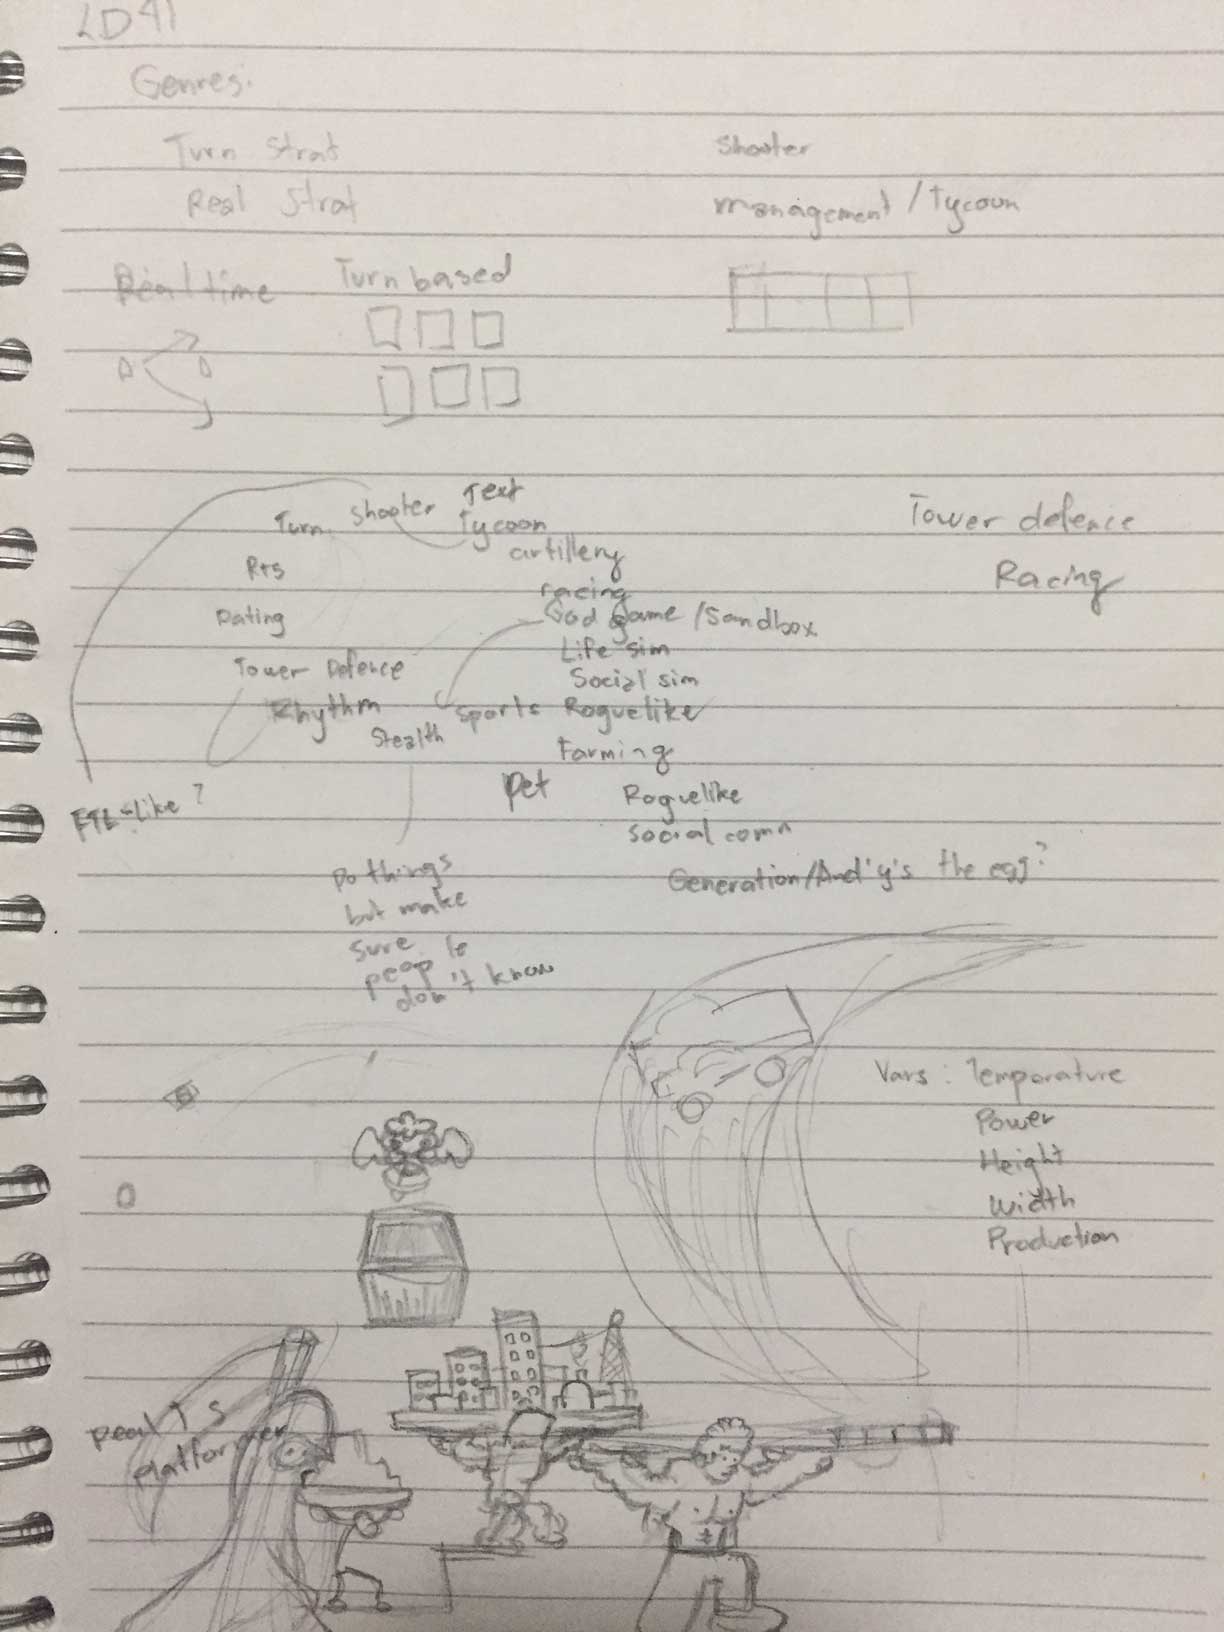 LD 41
Genres:
Turn Strat
Shooter
Real Strat
management/Tycoon
Real time
Turn based
Shooter
Text
Turn
Tycoon
artillery
Rts
racing
Dating
God game/Sandbox
Life sim
Tower Defence
Social sim
Rhythm
Sports
Roguelike
Stealth
Farming
Pet
Roguelike
FTL-Like?
Tower defence
Racing
Do things
but make
sure
people
don't know
Generation/And'y's the egg?
Vars: Temporature
Power
Height
Width
Production
platformer